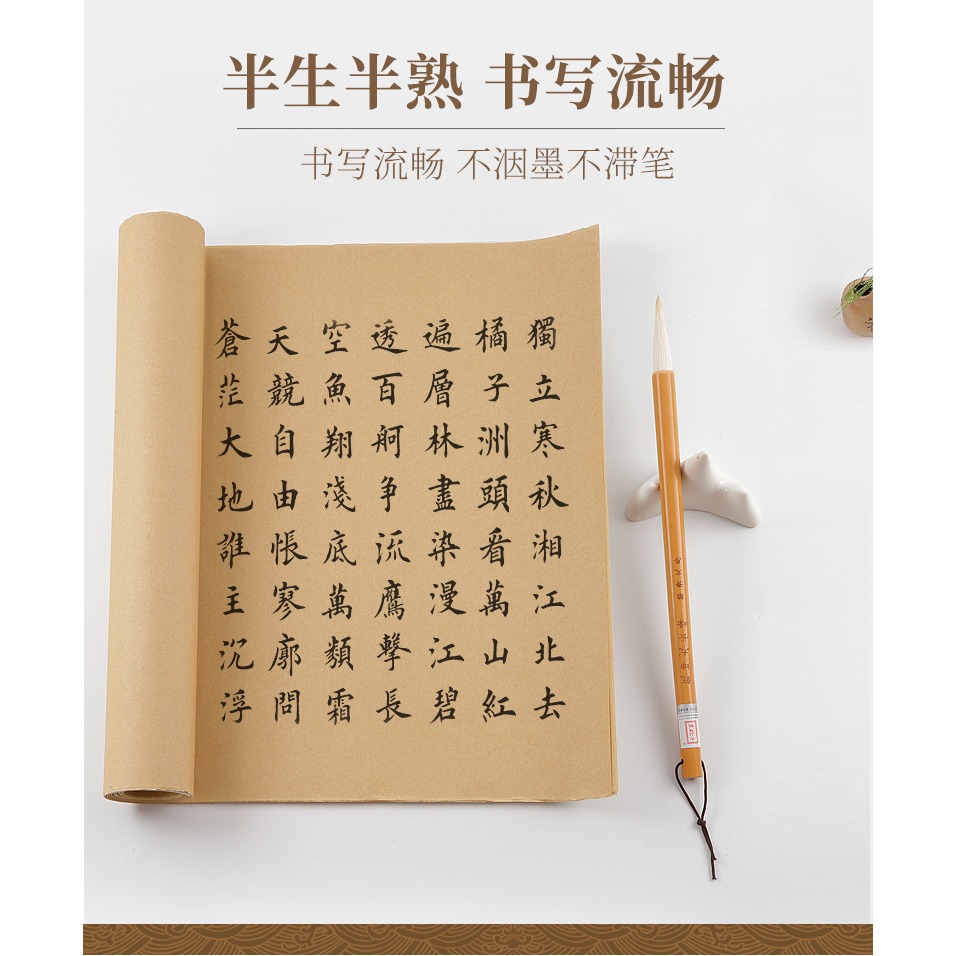 半生半熟 书写流畅
书写流畅 不洇墨不滞笔
獨立寒秋湘江北去
橘子洲頭看萬山紅
遍層林盡染漫江碧
透百舸争流鷹擊長
空魚翔淺底萬類霜
天競自由悵寥廓問
蒼茫大地誰主沉浮
乾坤大长峰